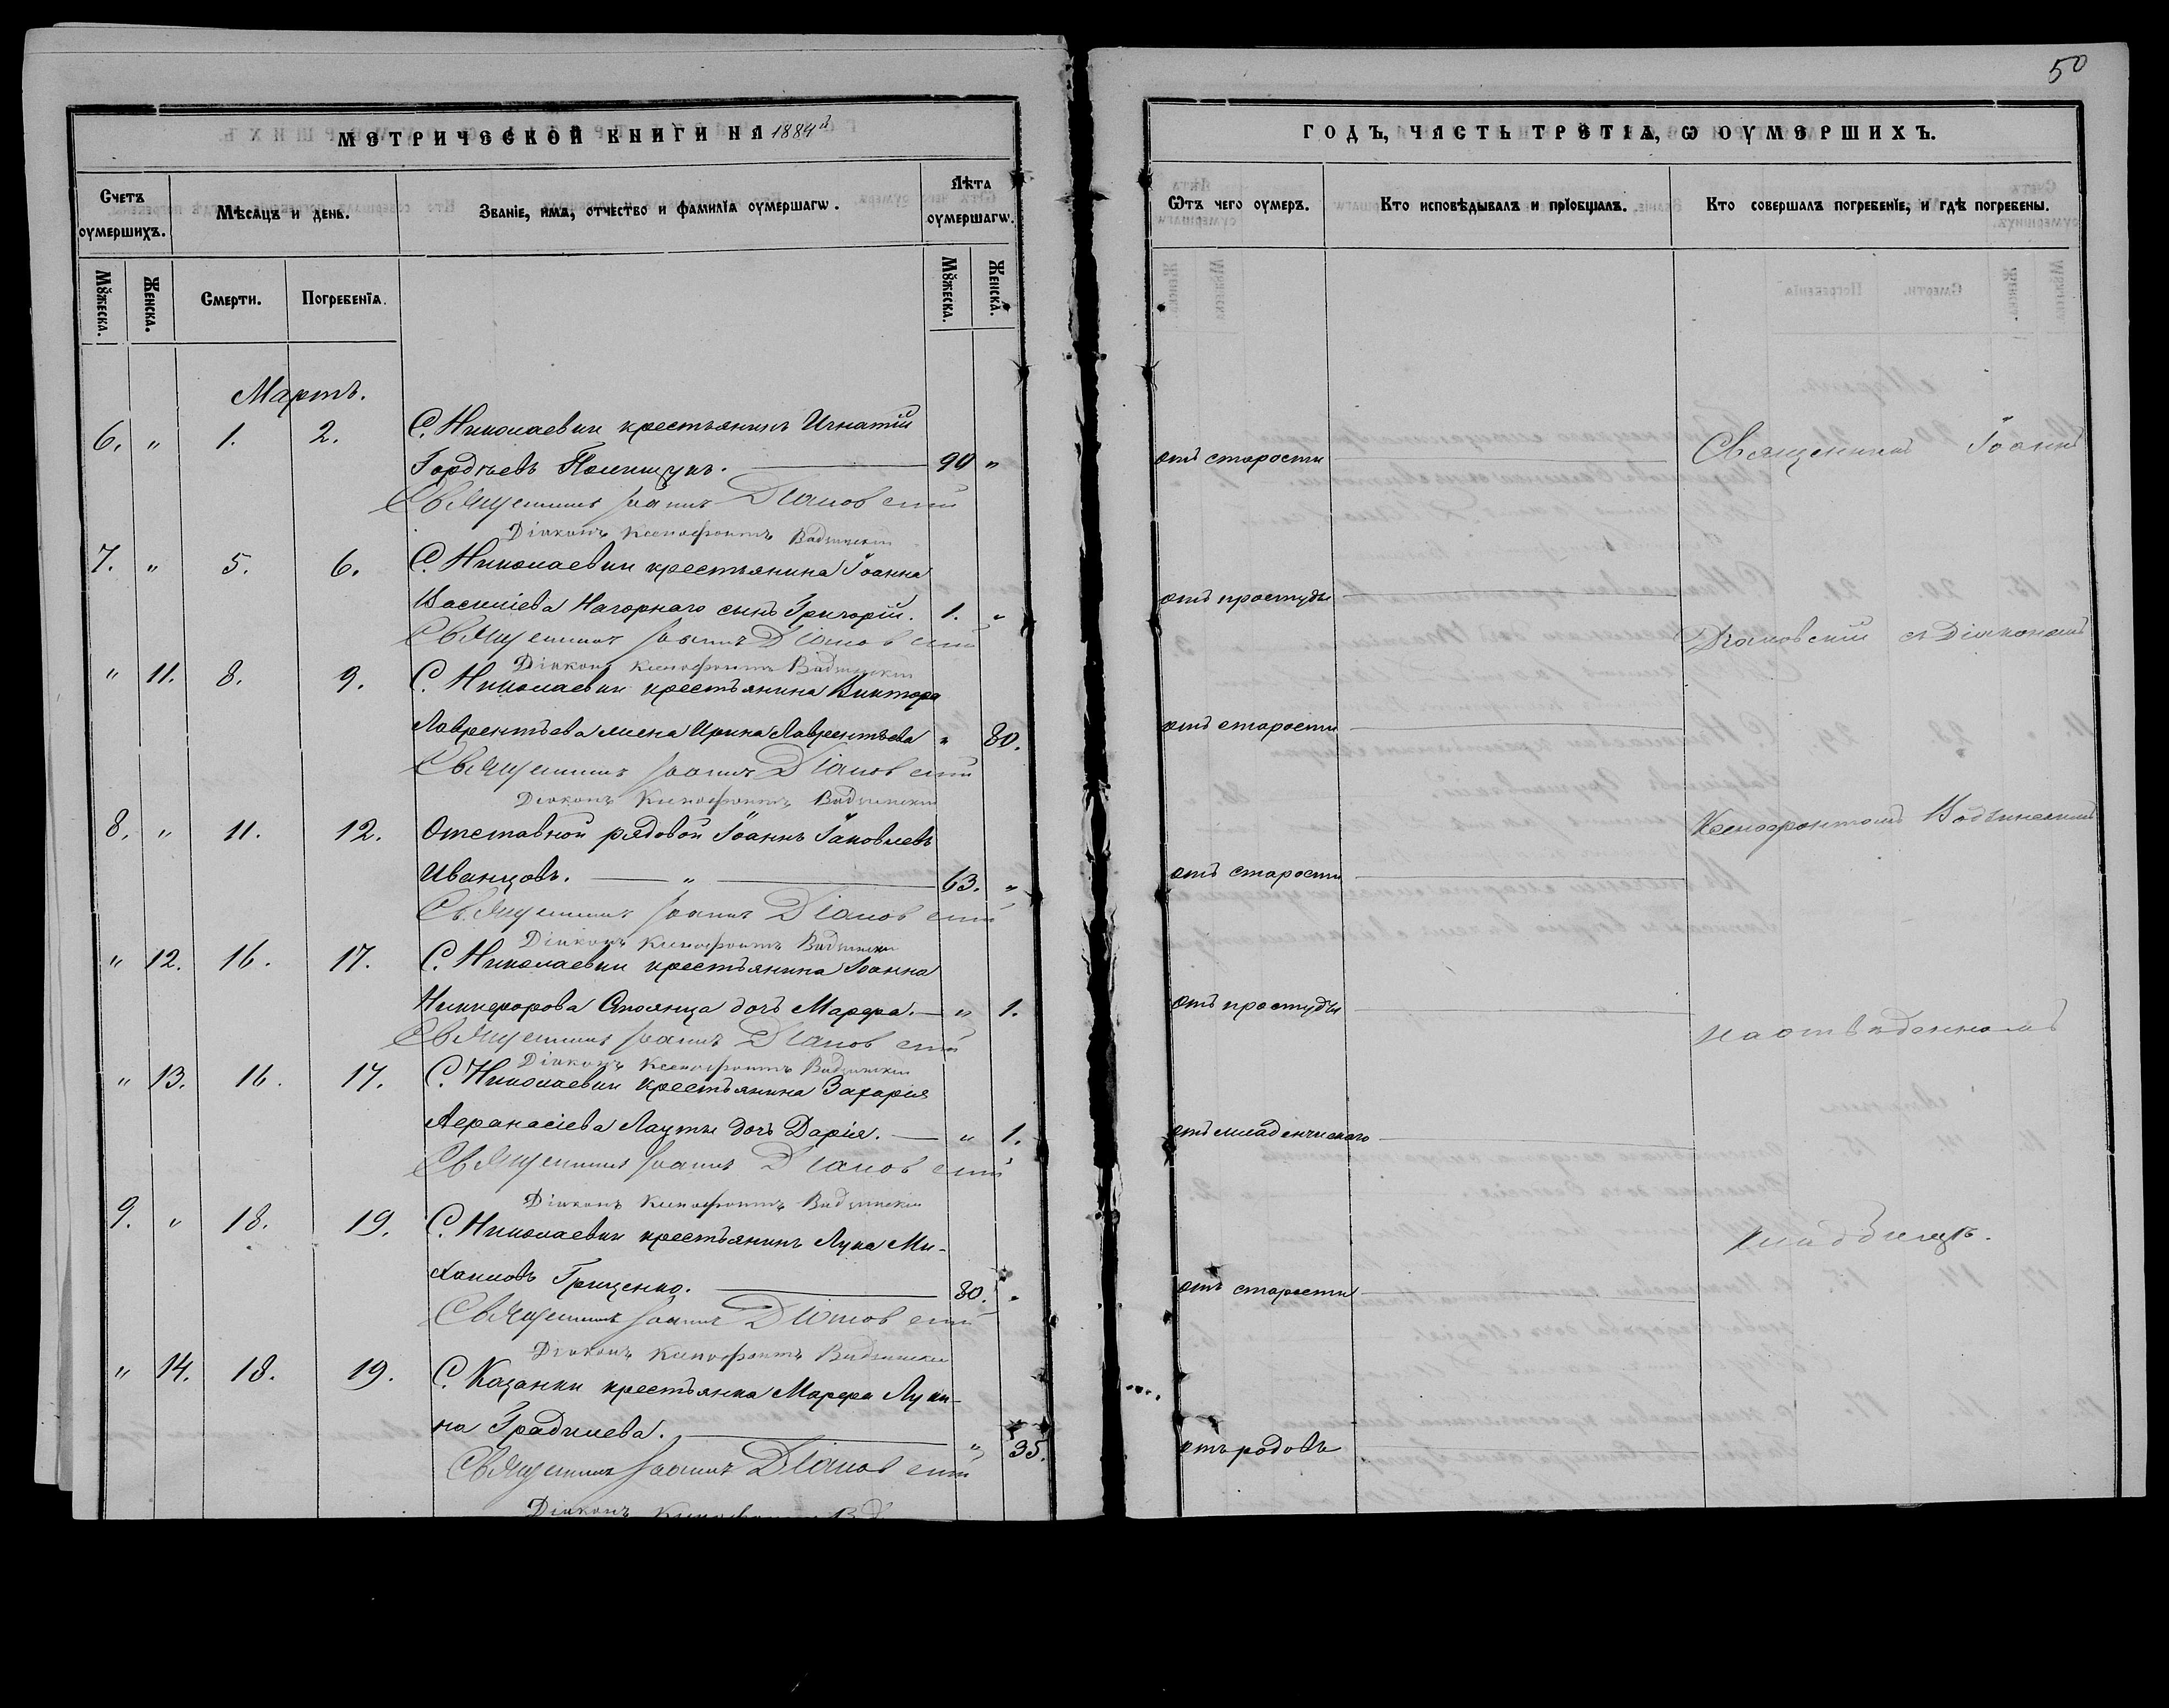 50
МЕТРИЧЕСКОЙ КНИГИ НА 1884й
ГОДЪ, ЧАСТЬ ТРЕТІѦ, Ѡ ОУМЕРШИХЪ.
Счетъ оумершихъ.
Мѣсѧцъ и день.
Званіе, имѧ, отчество и фамиліѧ оумершагѡ.
Лѣта оумершагѡ.
Мꙋжеска.
Женска.
Смерти.
Погребеніѧ.
Мꙋжеска.
Женска.
Ѿ чего оумеръ.
Кто исповѣдывалъ и пріобщалъ.
Кто совершалъ погребеніе, и гдѣ погребены.
Мартъ.
6. " 1. 2. С. Николаевки крестьянинъ Игнатій
Гордѣевъ Полищукъ. 90 " отъ старости
Священникъ Іоаннъ Діановскій
Діаконъ Ксенофонтъ
7. " 5. 6. С. Николаевки крестьянина Іоанна
Василіева Нагорнаго сынъ Григорій. 1. " отъ простуды
Священникъ Іоаннъ Діановскій
Діаконъ Ксенофонтъ
" 11. 8. 9. С. Николаевки крестьянина Виктора
Лаврентьева жена Ирина Лаврентьева " 80. отъ старости
Священникъ Іоаннъ Діановскій
Діаконъ Ксенофонтъ
8. " 11. 12. Отставной рядовой Іоаннъ Іаковлевъ
Иванцовъ. " 63. " отъ старости
Священникъ Іоаннъ Діановскій
Діаконъ Ксенофонтъ
" 12. 16. 17. С. Николаевки крестьянина Іоанна
Никифорова дочь Марфа. " 1. отъ простуды
Священникъ Іоаннъ Діановскій
Діаконъ Ксенофонтъ
" 13. 16. 17. С. Николаевки крестьянина Захарія
Афанасіева Лауты дочь Дарія. " 1. отъ младенческаго
Священникъ Іоаннъ Діановскій
Діаконъ Ксенофонтъ
9. " 18. 19. С. Николаевки крестьянинъ Лука Ми-
хаиловъ Грищенко. 80. " отъ старости
Священникъ Іоаннъ Діановскій
Діаконъ Ксенофонтъ
" 14. 18. 19. С. Казанки крестьянка Марфа Луки-
на Градилева. " 35. отъ родовъ
Священникъ Іоаннъ Діановскій
Діаконъ
Священникъ Іоаннъ
Діановскій съ Діакономъ
Ксенофонтомъ
на отведенномъ
кладбищѣ.